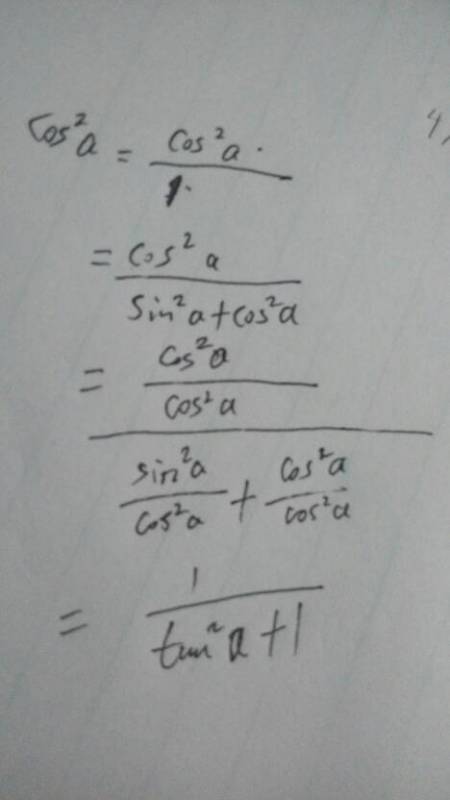 cos²a = cos²a / 1
= cos²a / sin²a + cos²a
= cos²a / cos²a / sin²a / cos²a + cos²a / cos²a
= 1 / tan²a + 1
4,